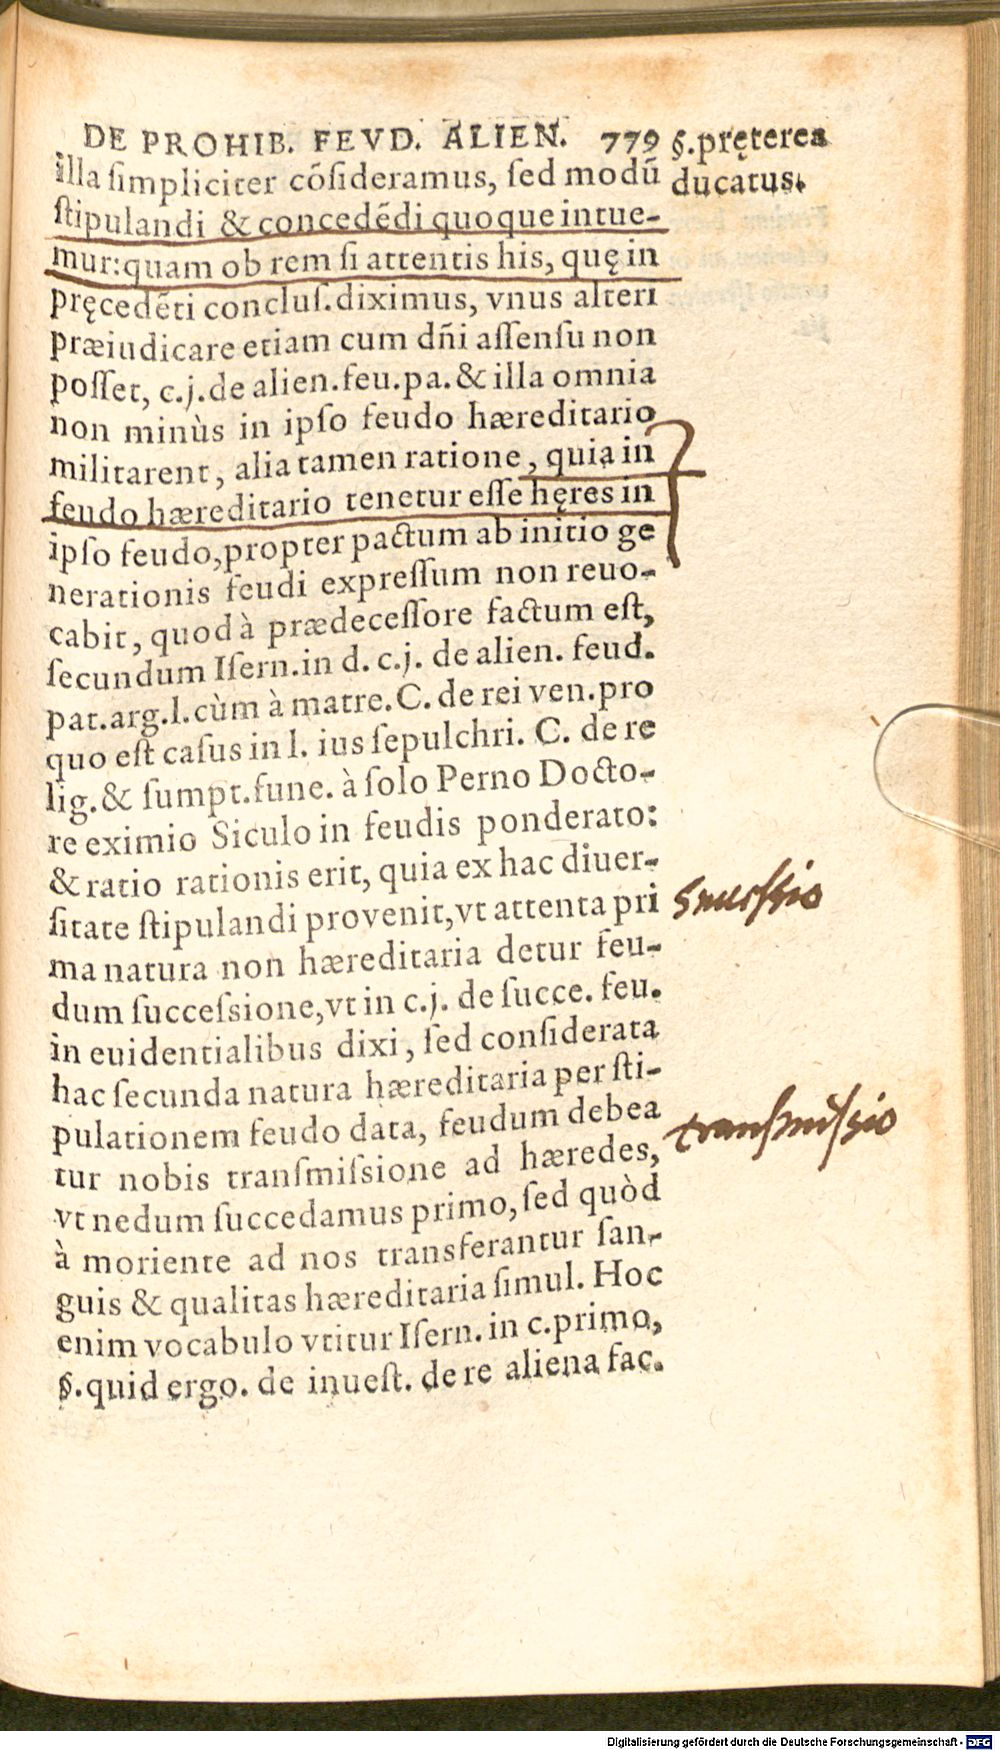 DE PROHIB. FEVD. ALIEN. 779 §.pręterea
ducatus.
illa ſimpliciter cõſideramus, ſed modũ
ſtipulandi & concedẽdi quoque intue-
mur: quam ob rem ſi attentis his, quę in
pręcedẽti concluſ. diximus, vnus alteri
præiudicare etiam cum dñi aſſenſu non
poſſet, c.j. de alien. feu. pa. & illa omnia
non minùs in ipſo feudo hæreditario
militarent, alia tamen ratione, quia in
feudo hæreditario tenetur eſſe hęres in
ipſo feudo, propter pactum ab initio ge
nerationis feudi expreſſum non reuo-
cabit, quod à prædeceſſore factum eſt,
ſecundum Iſern. in d. c.j. de alien. feud.
pat. arg. l. cùm à matre. C. de rei ven. pro
quo eſt caſus in l. ius ſepulchri. C. de re
lig. & ſumpt. fune. à ſolo Perno Docto-
re eximio Siculo in feudis ponderato:
& ratio rationis erit, quia ex hac diuer-
ſitate ſtipulandi provenit, vt attenta pri
ma natura non hæreditaria detur feu-
dum ſucceſsione, vt in c.j. de ſucce. feu.
in euidentialibus dixi, ſed conſiderata
hac ſecunda natura hæreditaria per ſti-
pulationem feudo data, feudum debea
tur nobis tranſmiſsione ad hæredes,
vt nedum ſuccedamus primo, ſed quòd
à moriente ad nos transferantur ſan-
guis & qualitas hæreditaria ſimul. Hoc
enim vocabulo vtitur Iſern. in c. primo,
§. quid ergo. de inueſt. de re aliena fac.
Sucessio
transmissio
Digitalisierung gefördert durch die Deutsche Forschungsgemeinschaft - DFG